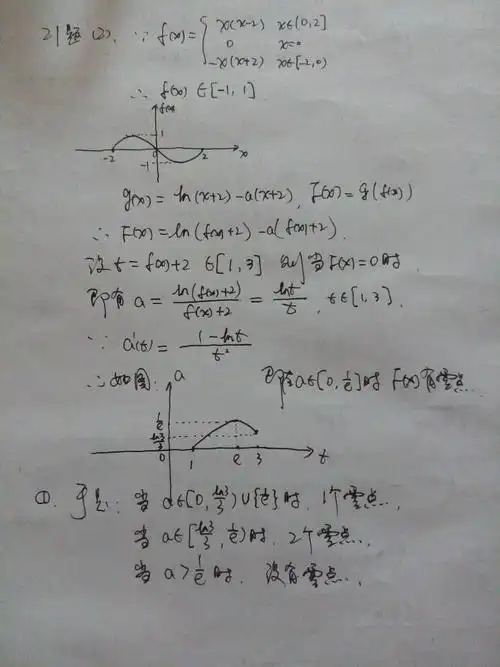 21题(2). ∵ f(x)= { x(x-2) x∈(0,2]
0 x=0
-x(x+2) x∈[-2,0)
∴ f(x)∈[-1,1]
f(x)
1
-2 0 2 x
-1
g(x)=ln(x+2)-a(x+2), F(x)=g(f(x))
∴ F(x)=ln(f(x)+2)-a(f(x)+2).
设t=f(x)+2 ∈[1,3] 则当F(x)=0时
即有 a= ln(f(x)+2)/f(x)+2 = lnt/t, t∈[1,3].
∵ a'(t)= 1-lnt/t²
∴如图: 即当a∈[0,1/e]时 F(x)有零点.
a
1/e
ln3/3
0 1 e 3 t
①. 于是: 当 a∈[0,ln3/3)∪{1/e}时, 1个零点.
当 a∈[ln3/3,1/e)时, 2个零点.
当 a>1/e时, 没有零点.